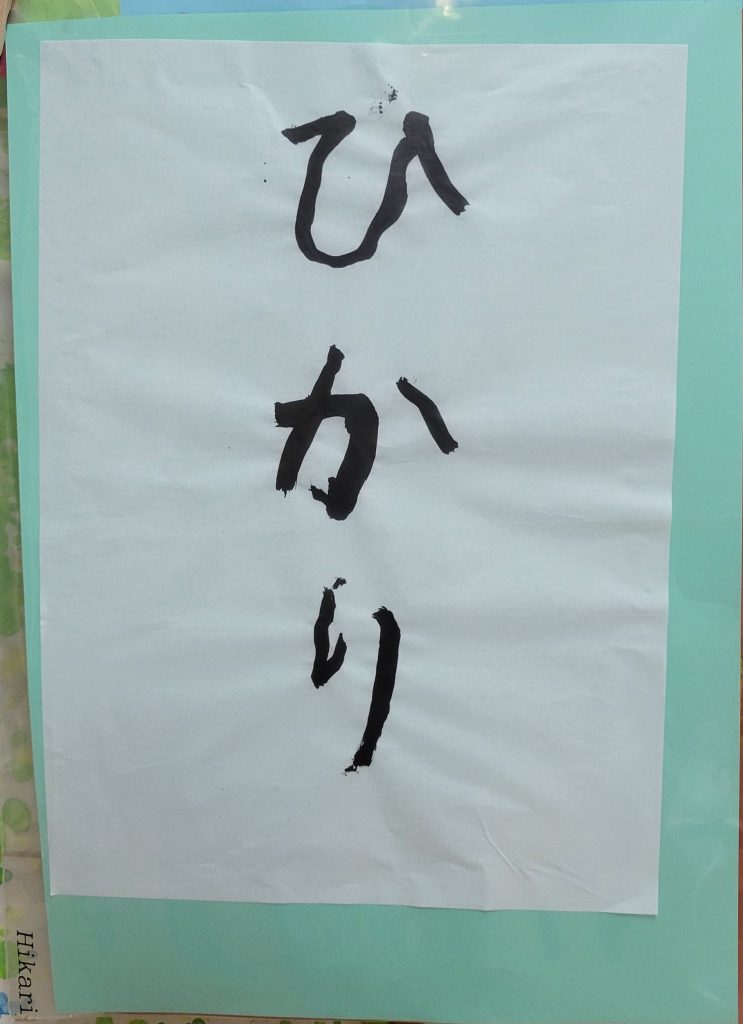 ひかり
Hikari